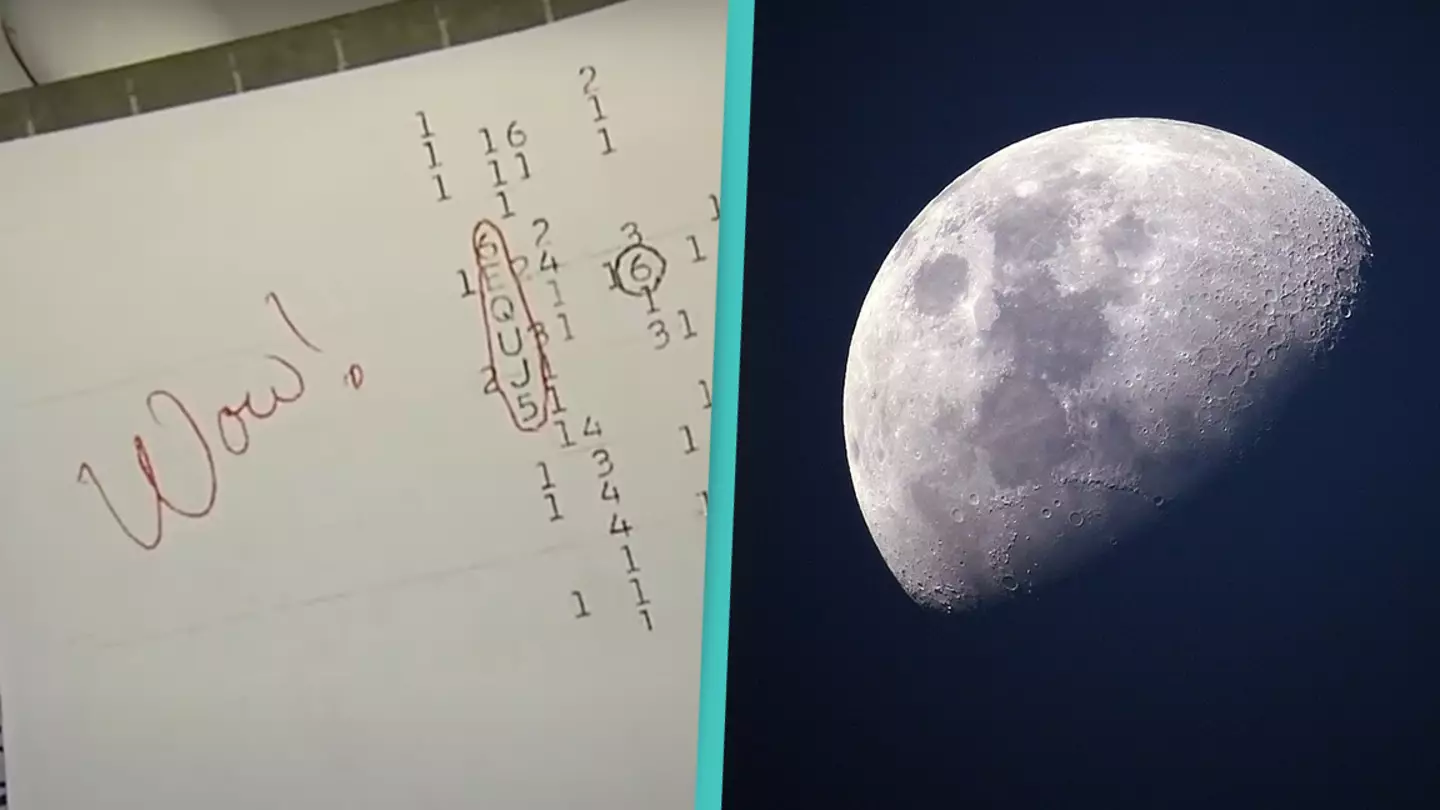 Wow!
1 2
1 16 1
1 11 1
1
6 2 3 1
1 E 2 4 1 6 1
Q 1 1
U 3 1 3 1
2 J 1
5 1 1
1 4 1
1 3
1 4 1
4
1
1 1
1